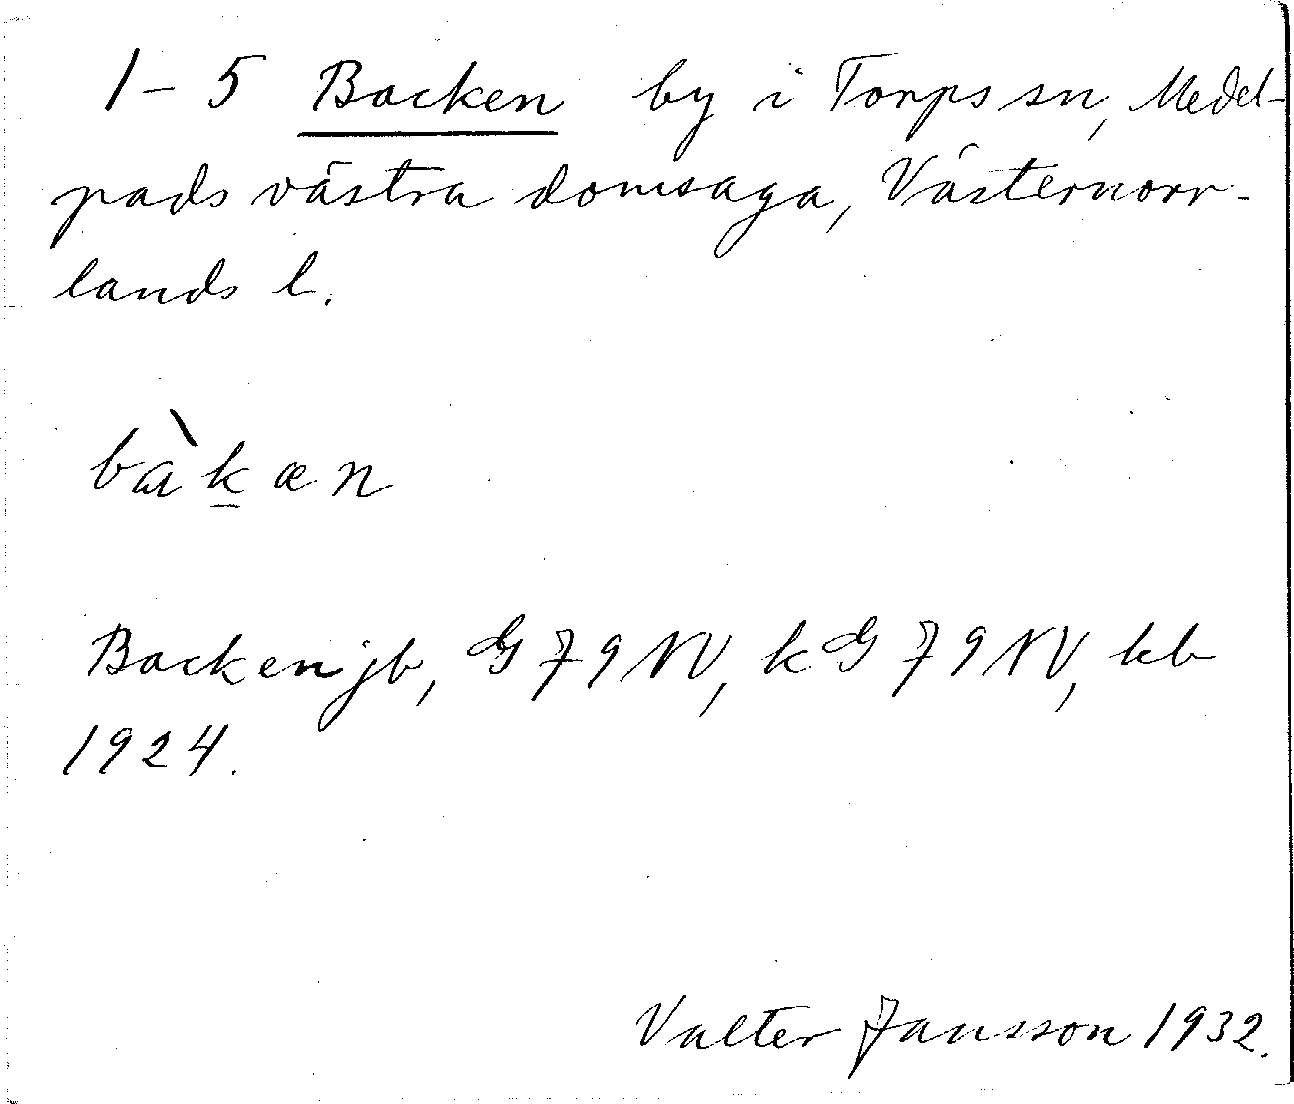 1-5 Backen by i Torps sn, Medel-
pads västra domsaga, Västernorr-
lands l.
bàk̲æn
Backen jb, G 79 NV, kG 79 NV, kb
1924.
Valter Jansson 1932.